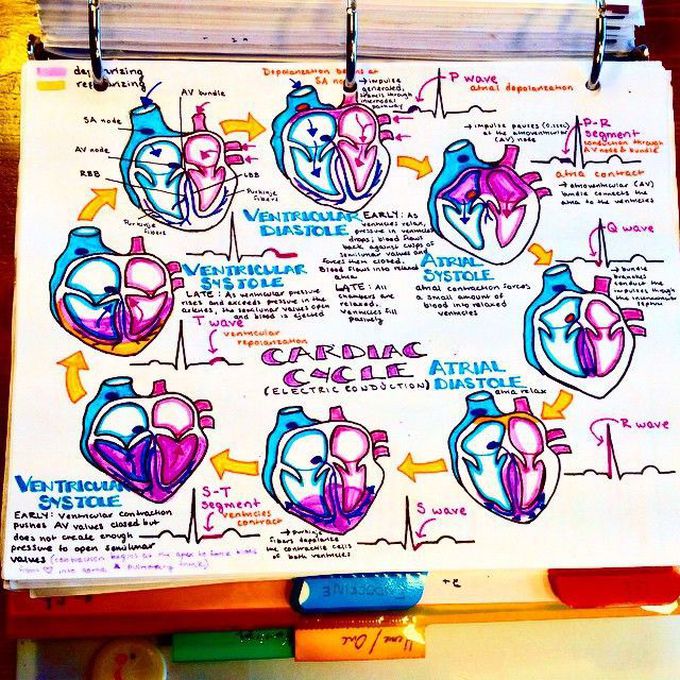 depolarizing
repolarizing
AV bundle
SA node
AV node
RBB
LBB
Purkinje
fibers
Purkinje
fibers
Depolarization begins at
SA node
→ impulse
generated,
travels through
internodal
pathway
P wave
atrial depolarization
→ impulse pauses
at the atrioventricular
(AV) node
P-R
segment
conduction through
AV node & bundle
atria contract
→ atrioventricular (AV)
bundle connects the
atria to the ventricles
Q wave
→ bundle
branches
conduct the
impulses through
the
R wave
VENTRICULAR
DIASTOLE
EARLY: As
ventricles relax,
pressure in ventricles
drops; blood flows
back against cusps of
semilunar valves and
forces them closed.
Blood flows into relaxed
atria
LATE: All
chambers are
relaxed.
ventricles fill
passively
ATRIAL
SYSTOLE
atrial contraction forces
a small amount of
blood into relaxed
ventricles
VENTRICULAR
SYSTOLE
LATE: As ventricular pressure
rises and exceeds pressure in the
arteries, the semilunar valves open
and blood is ejected
T wave
ventricular
repolarization
CARDIAC
CYCLE
(ELECTRIC CONDUCTION)
ATRIAL
DIASTOLE
atria relax
VENTRICULAR
SYSTOLE
EARLY: Ventricular contraction
pushes AV valves closed but
does not create enough
pressure to open semilunar
valves (contraction begins at the apex to force blood
into aorta & pulmonary trunk)
S-T
segment
ventricles
contract
→ purkinje
fibers depolarize
the contractile cells
of both ventricles
S wave
ENDOCRINE